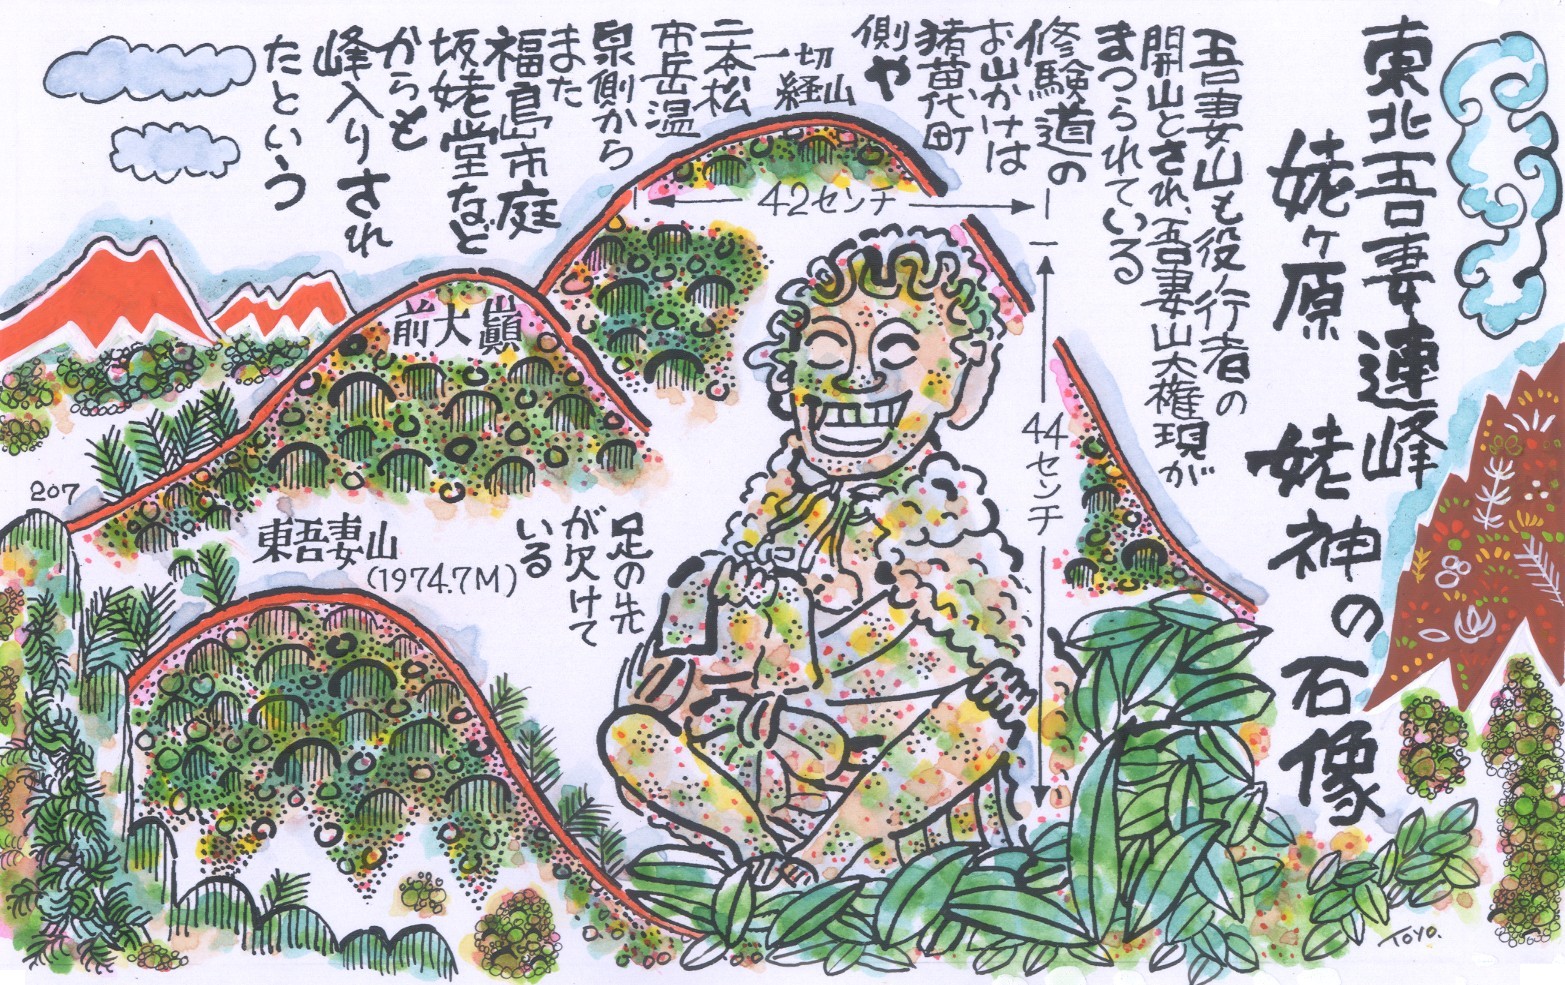 東北吾妻連峰
姥ヶ原　姥神の石像
吾妻山も役ノ行者の
開山とされ、吾妻山大権現が
まつられている
修験道の
お山かけは
猪苗代町
側や
二本松
市岳温
泉側から
また
福島市庭
坂姥堂など
からも
峰入りされ
たという
一切
経山
42センチ
44センチ
前大巓
東吾妻山
(1974.7M)
足の先
が欠けて
いる
207
TOYO.